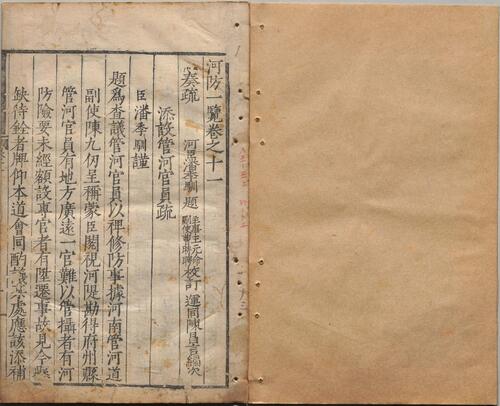 河防一覽卷之十一
奏疏
河臣潘季馴題
校訂
添設管河官員疏
臣潘季馴謹
題為查議管河官員以裨修防事據河南管河道
副使陳九仞呈稱蒙臣閱視河堤勘得府州縣
管河官員有地方廣遠一官難以管攝者有河
防險要未經額設專官者有陞遷事故見今懸
缺待銓者牌仰本道會同酌議何處應該添補